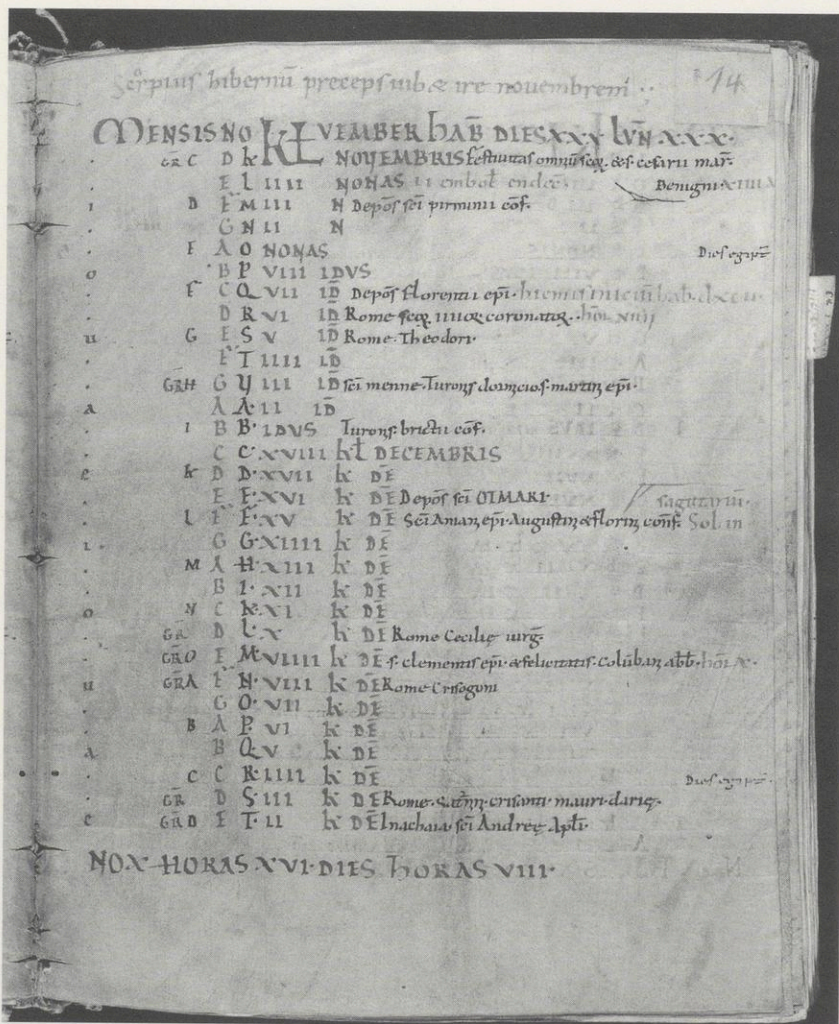 Scorpius hibernū preceps iubæ ire novembrem 14
MENSIS NOVEMBER hAB̄ DIES XXX LVN̄ XXX
GR̄ C D k KL NOVEMBRIS festiuitas omniū scōꝝ & s. cesarii mar̄.
E L IIII NONAS Benigni
D F M III N Depos̄ sc̄i pirminii cōf.
G N II N
E A O NONAS Dies egipt̄
B P VIII IDVS
F C Q VII ID̄ Depos̄ florentii ep̄i
D R VI ID̄ Rome scōꝝ IIIIor coronatoꝝ
G E S V ID̄ Rome Theodori
F T IIII ID̄
GR̄ H G Y III ID̄ sc̄i menne Turonis martin ep̄i
A A II ID̄
I B B IDVS Turonis brictii cōf.
C C XVIII kl DECEMBRIS
k D D XVII k DĒ
E E XVI k DĒ Depos̄ sc̄i OTMARI sagitarium
L F F XV k DĒ Sc̄i Aniani ep̄i Augustini & florini conf̄ Sol in
G G XIIII k DĒ
M A H XIII k DĒ
B I XII k DĒ
N C K XI k DĒ
GR̄ D L X k DĒ Rome Cecilię uirḡ
GR̄ O E M VIIII k DĒ s. clementis ep̄i & felicitatis. colūbani abb̄
GR̄ A F N VIII k DĒ Rome Crisogoni
G O VII k DĒ
B A P VI k DĒ
B Q V k DĒ
C C R IIII k DĒ Dies egipt̄
GR̄ D S III k DĒ Rome Saturn̄ crisanti mauri darię
GR̄ D E T II k DĒ In achaia sc̄i Andreę Apl̄i
NOX HORAS XVI DIES hORAS VIII